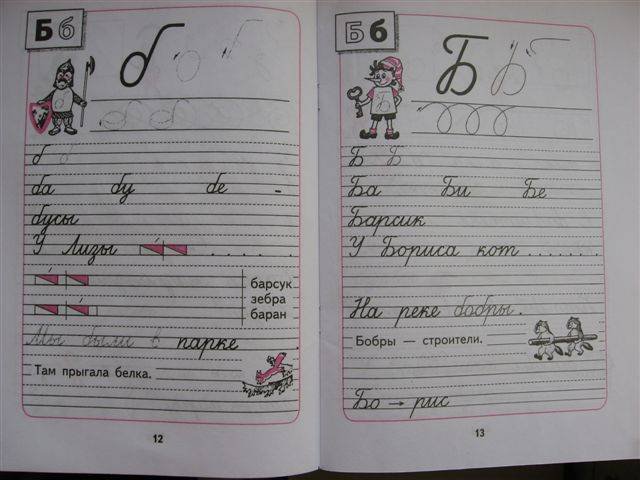 Б б
б
б б
ба бу бе -
бусы
У Лизы . . . . . .
барсук
зебра
баран
Мы были в парке .
Там прыгала белка.
12
Б б
Б Б
Б Б
Ба Би Бе
Барсик
У Бориса кот . . . . . . .
На реке бобры .
Бобры — строители.
Бо → рис
13